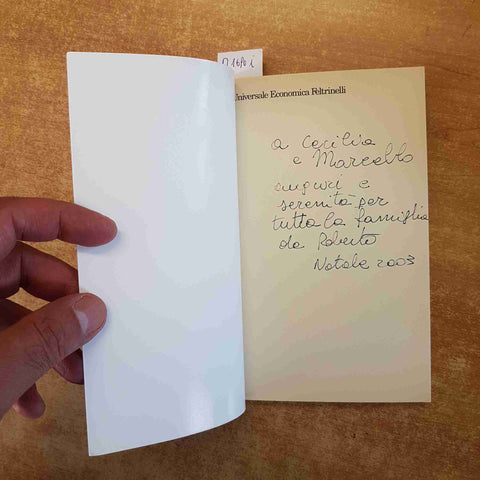 Universale Economica Feltrinelli
a Cecilia
e Marcello
auguri e
serenità per
tutta la famiglia
da Roberto
Natale 2003